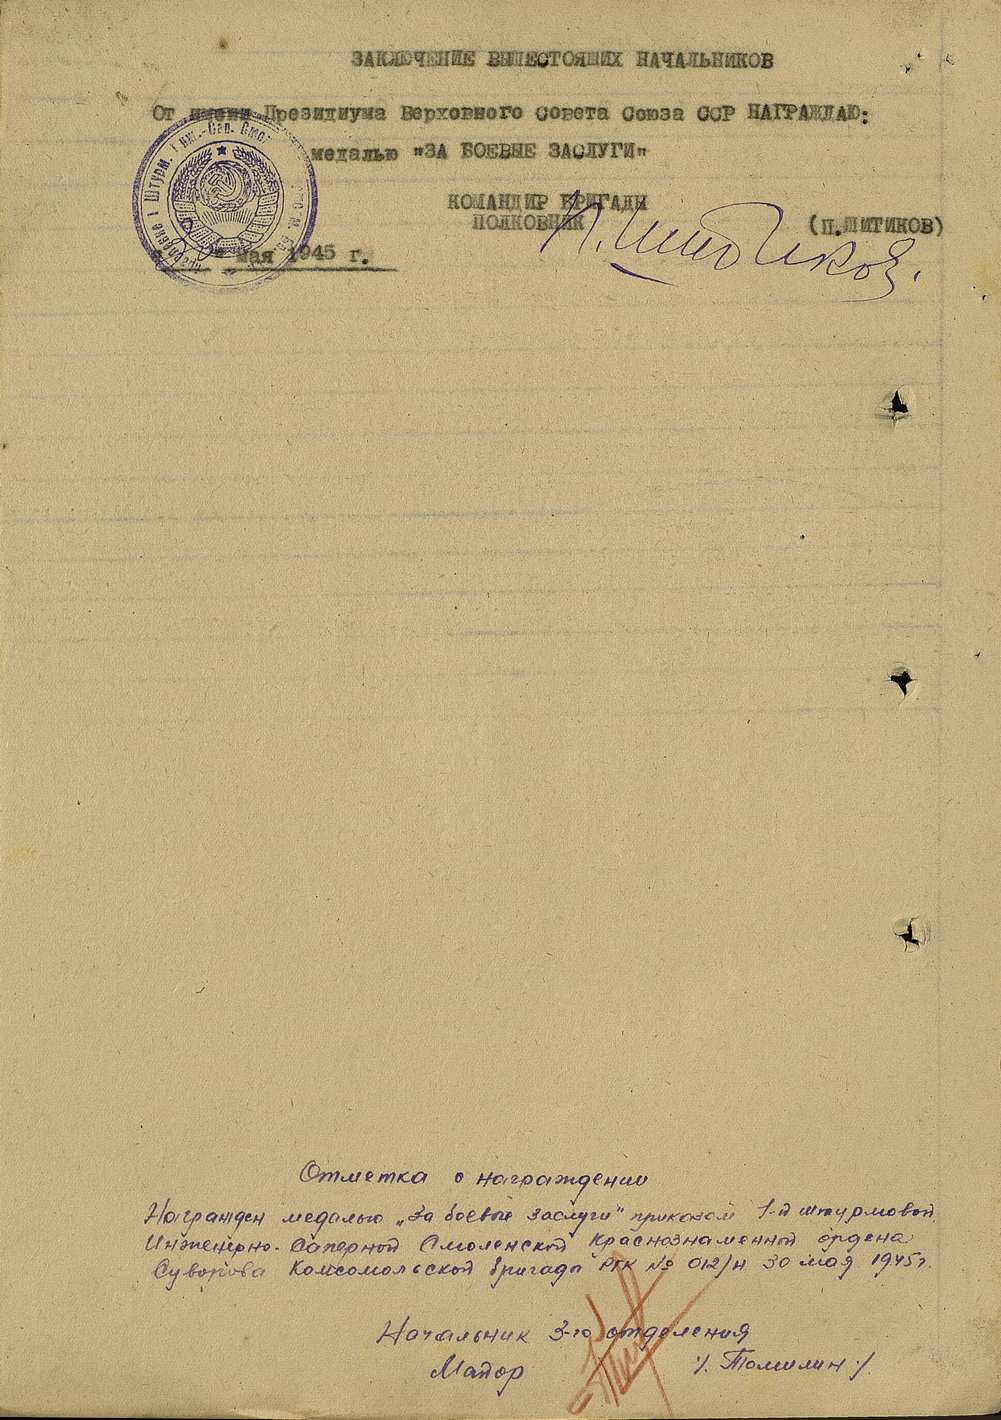 ЗАКЛЮЧЕНИЕ ВЫШЕСТОЯЩИХ НАЧАЛЬНИКОВ
От имени Президиума Верховного Совета Союза ССР НАГРАЖДАЮ:
медалью "ЗА БОЕВЫЕ ЗАСЛУГИ"
КОМАНДИР БРИГАДЫ
ПОЛКОВНИК
П. Шитиков.
(П.ШИТИКОВ)
мая 1945 г.
Штурм. Инж.-Сап.
Отметка о награждении
Награжден медалью „За боевые заслуги" приказом 1-й штурмовой
Инженерно-Саперной Смоленской Краснознаменной ордена
Суворова Комсомольской бригады РГК № 012/н 30 мая 1945г.
Начальник 3-го отделения
Майор
/. Томилин ./